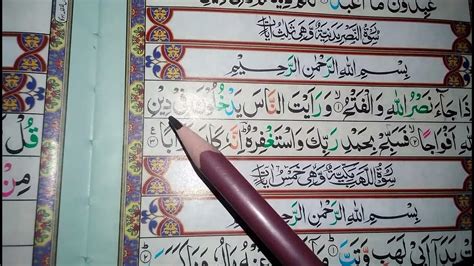 عْبُدُوْنَ مَاۤ اَعْبُدُ
سُوْرَةُ النَّصْرِ مَدَنِيَّةٌ وَّهِیَ ثَلٰثُ اٰيَاتٍ
بِسْمِ اللهِ الرَّحْمٰنِ الرَّحِيْمِ
جَآءَ نَصْرُ اللهِ وَ الْفَتْحُ ۙ۱ وَ رَاَيْتَ النَّاسَ يَدْخُلُوْنَ فِیْ دِيْنِ
اَفْوَاجًا ۙ۲ فَسَبِّحْ بِحَمْدِ رَبِّكَ وَ اسْتَغْفِرْهُ اِنَّهٗ كَانَ
سُوْرَةُ اللَّهَبِ مَكِّيَّةٌ وَّهِیَ خَمْسُ اٰيَاتٍ
بِسْمِ اللهِ الرَّحْمٰنِ الرَّحِيْمِ
يَدَاۤ اَبِیْ لَهَبٍ وَّ تَبَّ
قُلْ
مِنْ